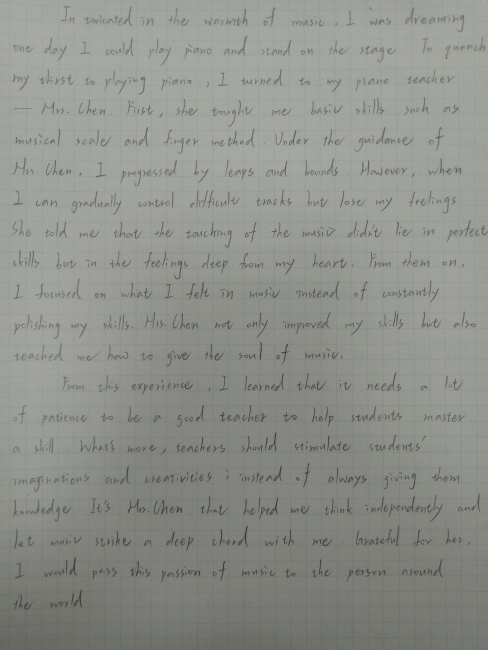 Intoxicated in the warmth of music, I was dreaming
one day I could play piano and stand on the stage. To quench
my thirst to playing piano, I turned to my piano teacher
— Mrs. Chen. First, she tought me basic skills such as
musical scale and finger method. Under the guidance of
Mrs. Chen, I progressed by leaps and bounds. However, when
I can gradually control difficult tracks but lose my feelings.
She told me that the touching of the music didn't lie in perfect
skills but in the feelings deep from my heart. From them on,
I focused on what I felt in music instead of constantly
polishing my skills. Mrs. Chen not only improved my skills but also
teached me how to give the soul of music.
From this experience, I learned that it needs a lot
of patience to be a good teacher to help students master
a skill. What's more, teachers should stimulate students'
imaginations and creativities; instead of always giving them
knowledge. It's Mrs. Chen that helped me think independently and
let music strike a deep chord with me. Grateful for her,
I would pass this passion of music to the person around
the world.